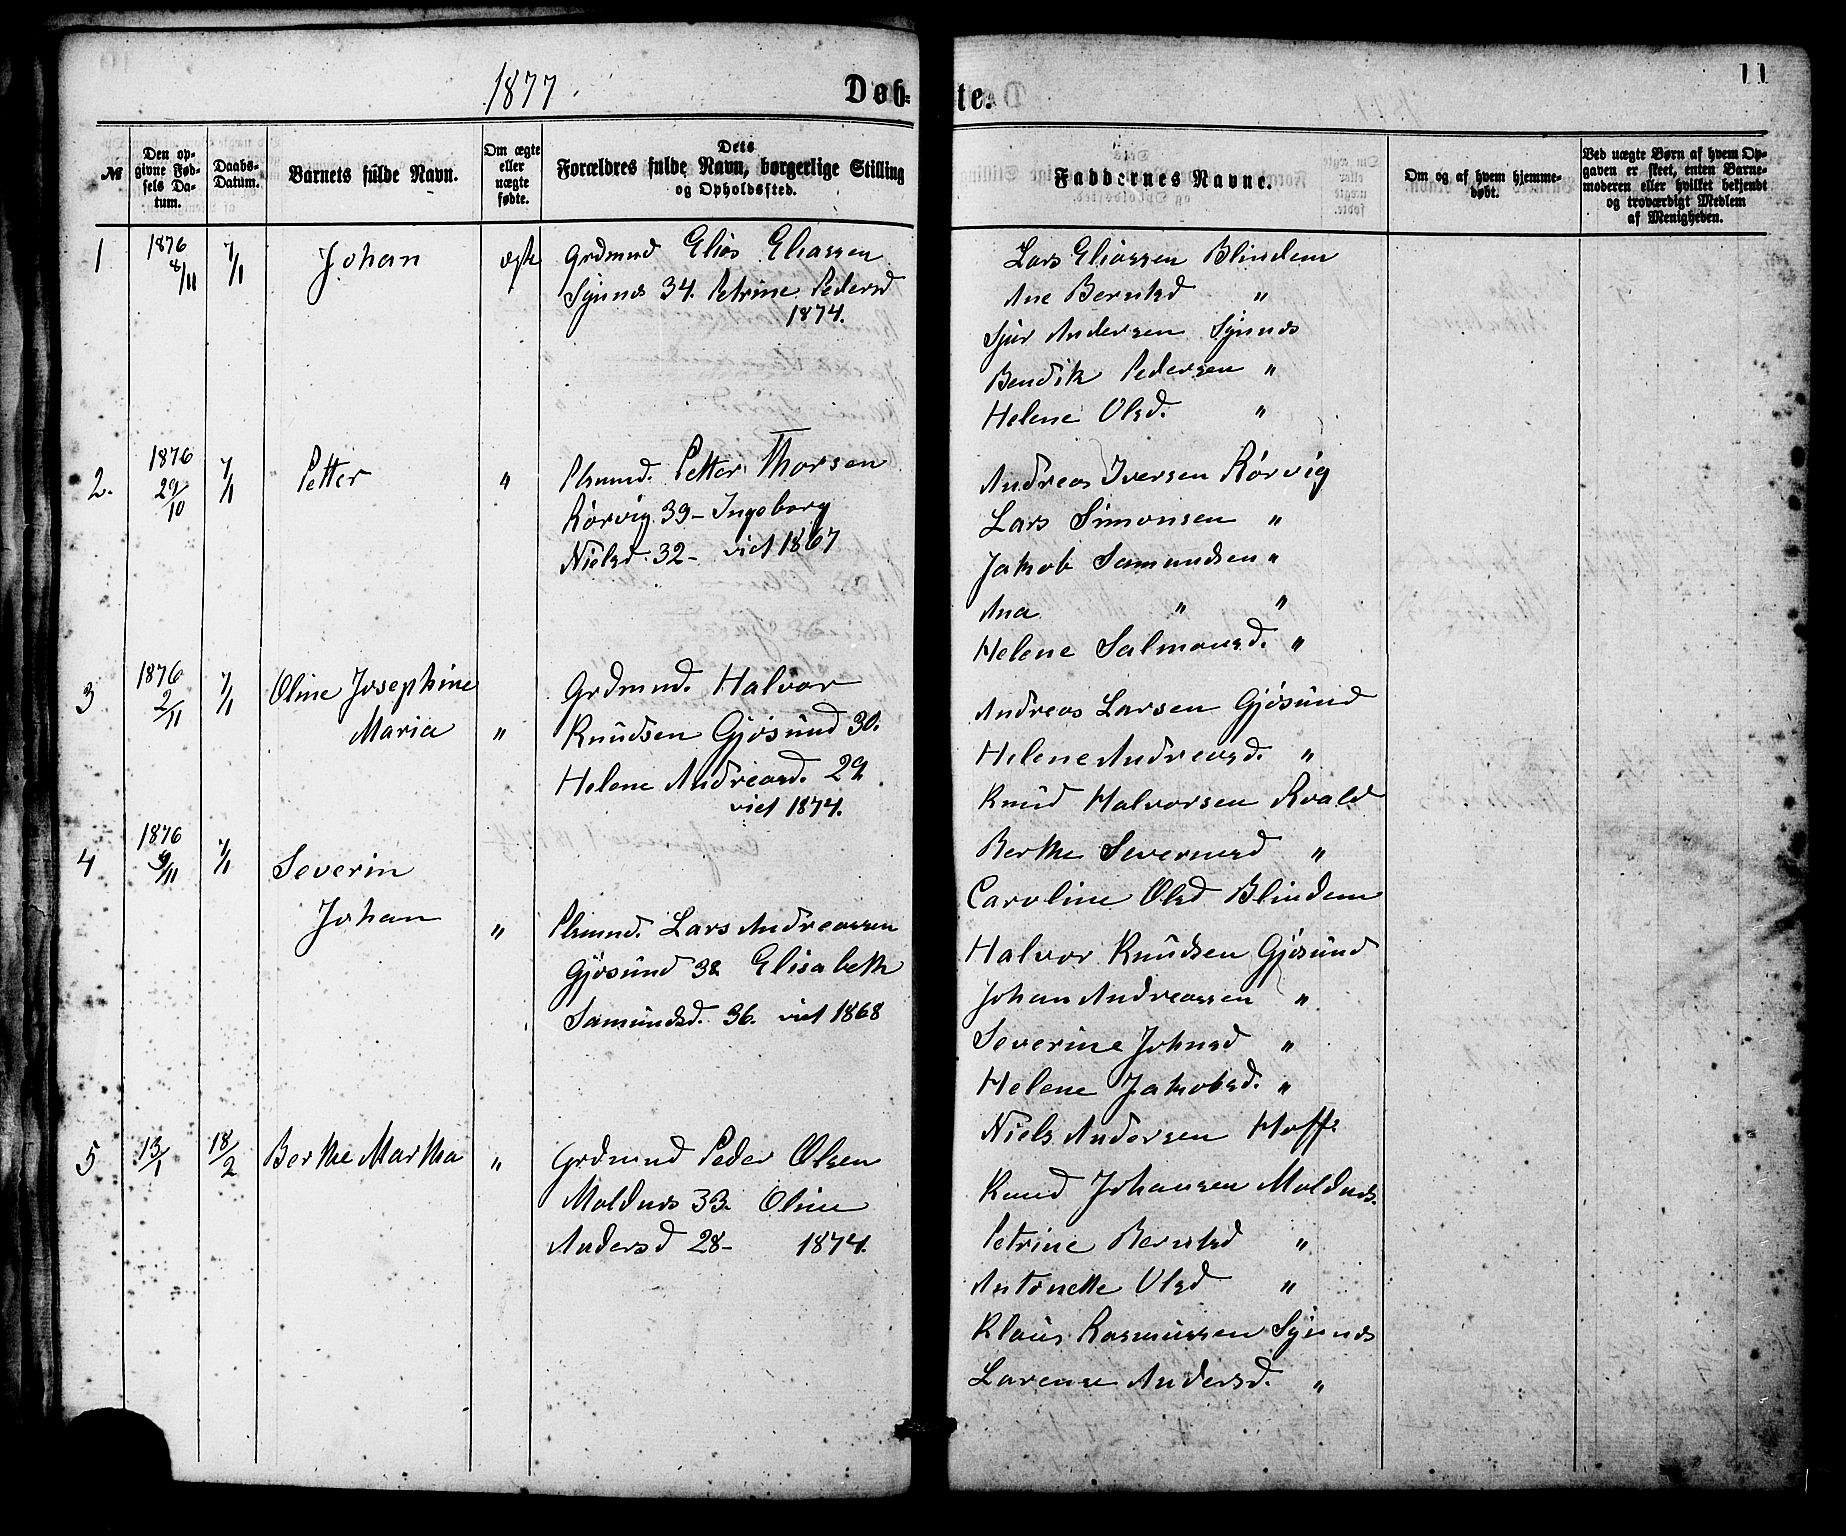 1877.
Døb-
te.
11
№
Den op-
givne Fød-
sels Da-
tum.
Daabs-
Datum.
Barnets fulde Navn.
Om ægte
eller
uægte
fødte.
Dets
Forældres fulde Navn, borgerlige Stilling
og Opholdssted.
Faddernes Navne.
Om og af hvem hjemme-
døbt.
Ved uægte Børn af hvem Op-
gaven er skeet, enten Barne-
moderen eller hvilket bekjendt
og troværdigt Medlem
af Menigheden.
1 1876 8/11 7/1 Johan ægte Grdmnd Elias Eliassen
Synnes 34. Petrine Pedersd
1874.
Lars Eliassen Blindem
Ane Berntsd "
Sjur Andersen Synnes
Bendik Pedersen "
Helene Olsd. "
2. 1876 29/10 7/1 Petter " Plsmnd. Petter Thorsen
Rørvig 39- Ingeborg
Nielsd. 32- viet 1867
Andreas Iversen Rørvig
Lars Simonsen "
Jakob Samundsen "
Ana " "
Helene Salmonsd. "
3 1876 2/11 7/1 Oline Josephine
Maria "
Grdmnd. Halvor
Knudsen Gjøsund 30.
Helene Andreasd. 29.
viet 1874.
Andreas Larsen Gjøsund
Helene Andreasd. "
Knud Halvorsen Roald
Berthe Severinsd "
Caroline Olsd Blindem
4 1876 9/11 7/1 Severin
Johan "
Plsmnd. Lars Andreassen
Gjøsund 38 Elisabeth
Samundsd. 36. viet 1868
Halvor Knudsen Gjøsund
Johan Andreassen "
Severine Johnsd "
Helene Jakobsd. "
Niels Andersen Hoff.
5 13/1 18/2 Berthe Martha " Grdmnd Peder Olsen
Moldnes 33. Oline
Andersd 28- 1874.
Knud Johansen Moldnes.
Petrine Berntsd "
Antonette Olsd "
Klaus Rasmussen Synnes
Larense Andersd. "